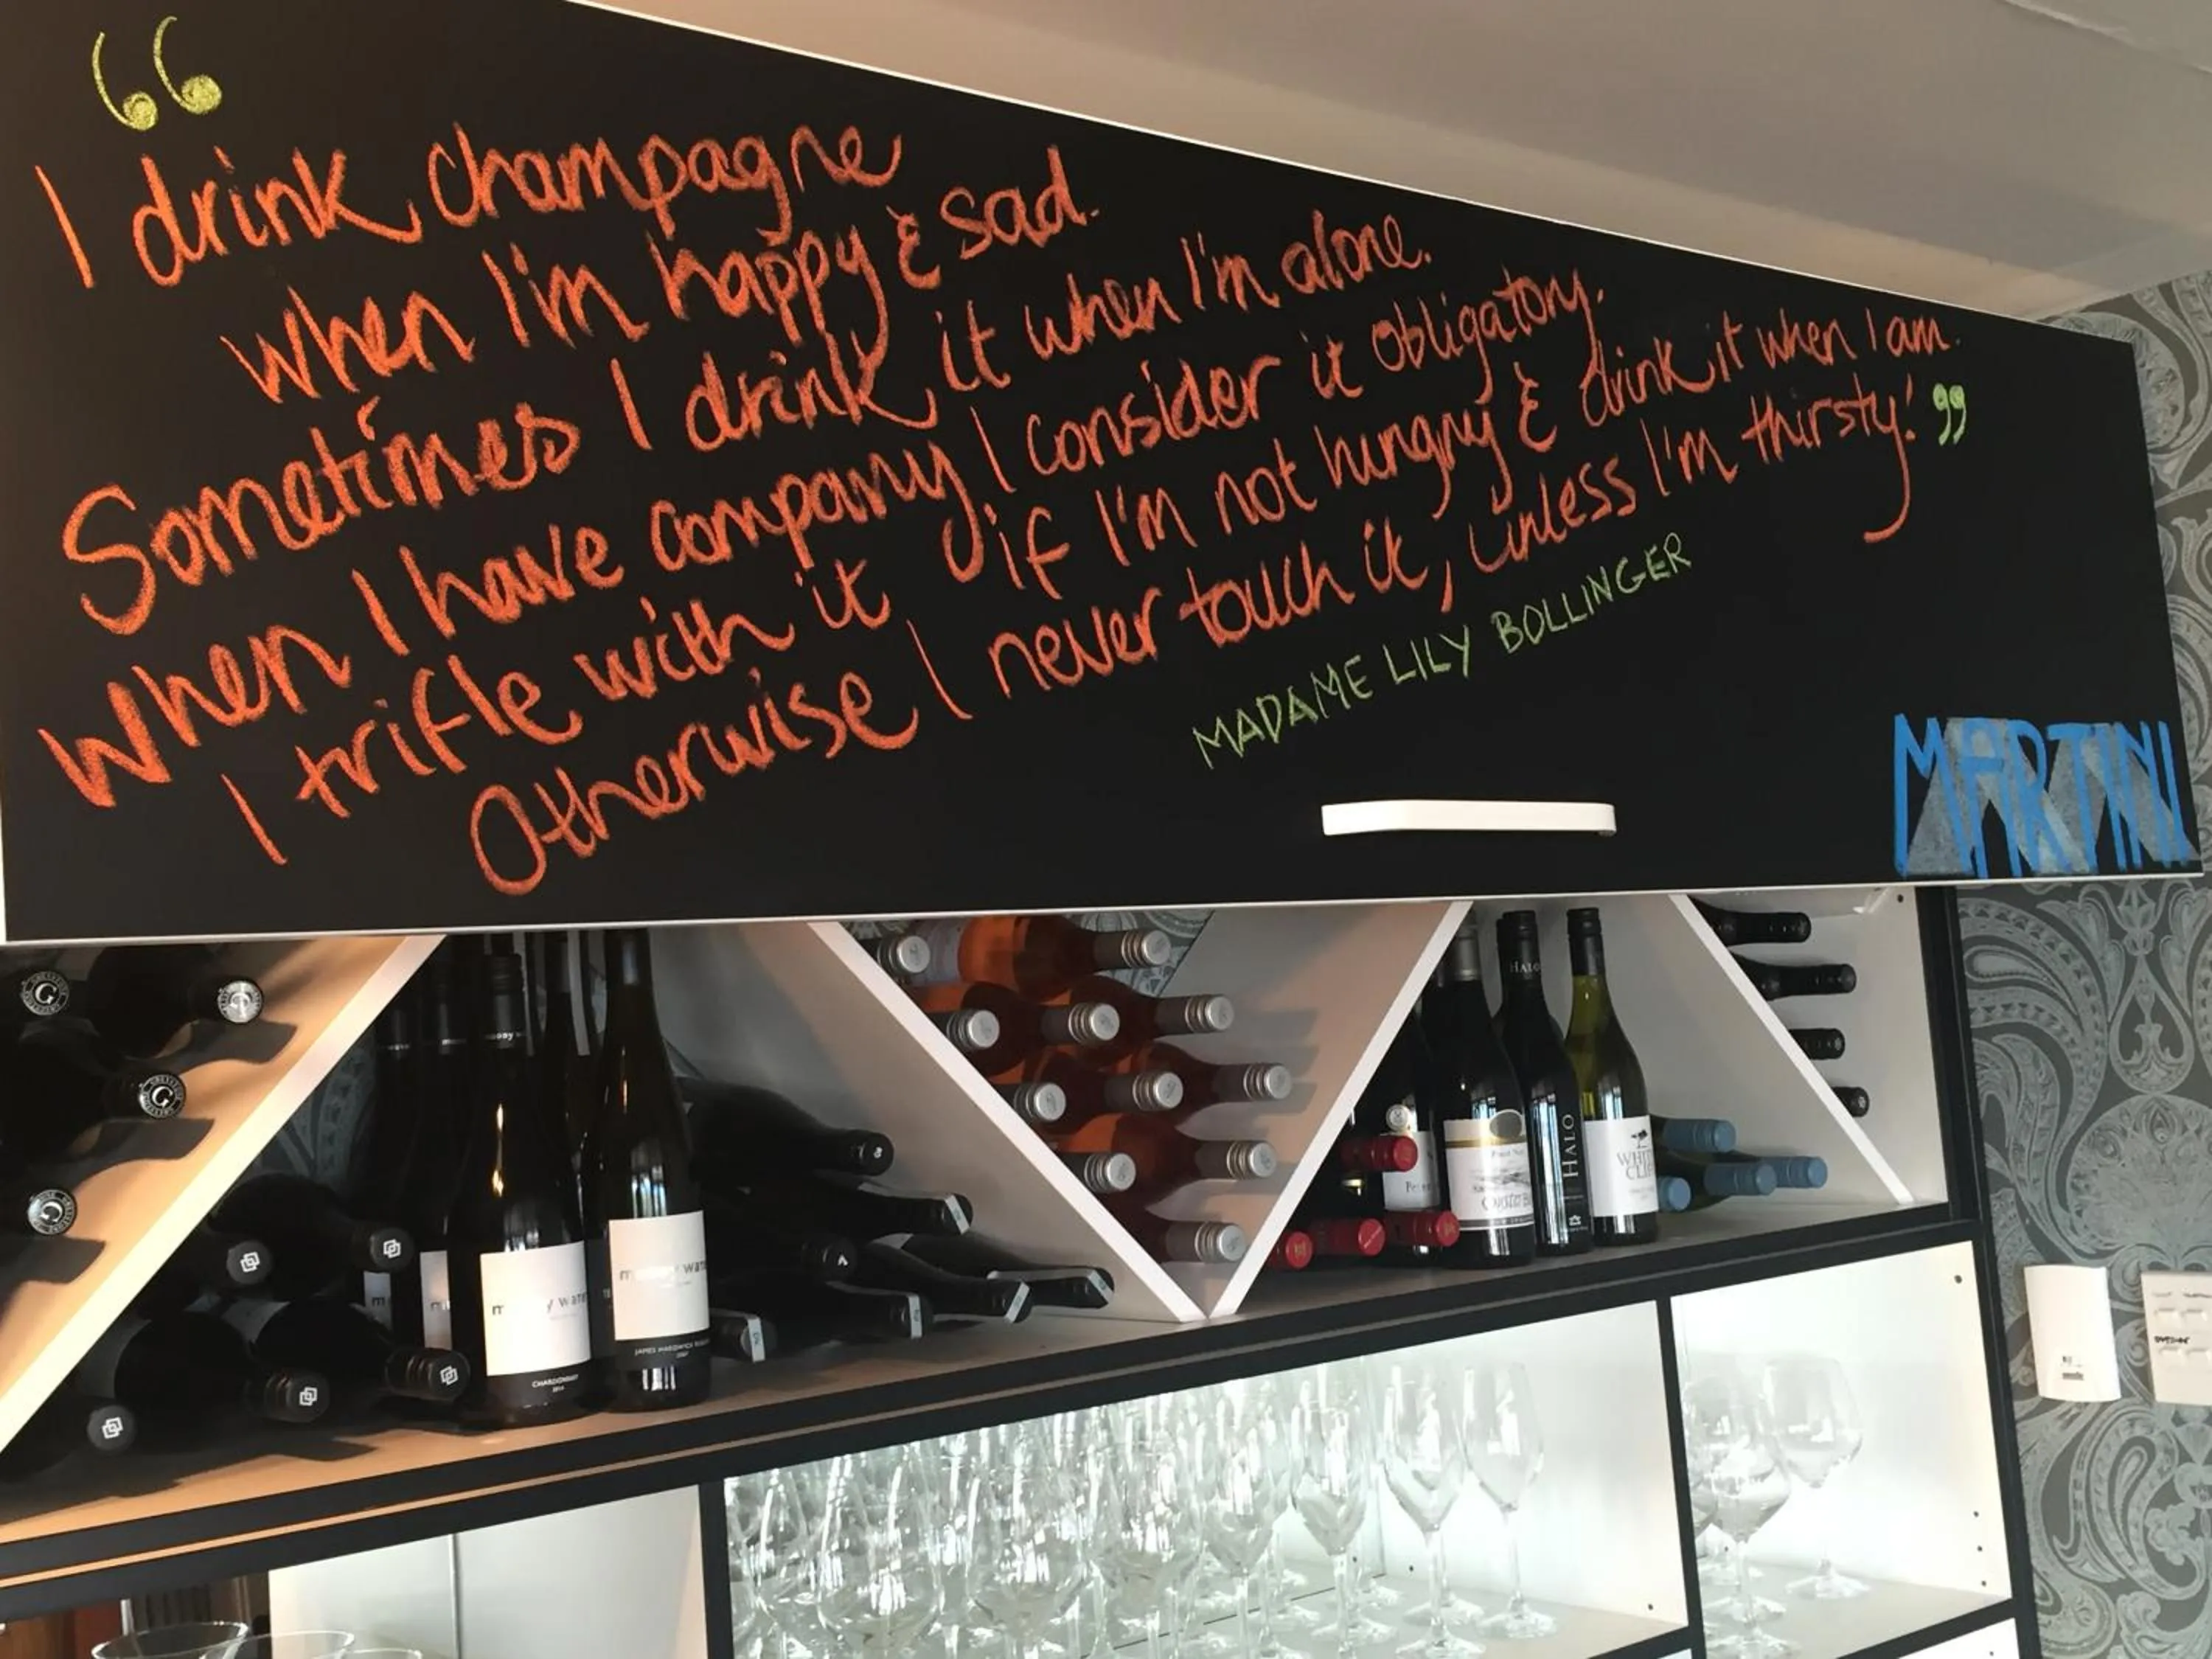 “
I drink champagne
when I'm happy & sad.
Sometimes I drink it when I'm alone.
When I have company, I consider it obligatory.
I trifle with it if I'm not hungry & drink it when I am.
Otherwise I never touch it, unless I'm thirsty! ”
MADAME LILY BOLLINGER
MARTINI
HALO
HALO
Pinot Noir
Oyster Bay
WHITE
CLIFF
CHARDONNAY
2014
JAMES HARDWICK
G
G
G